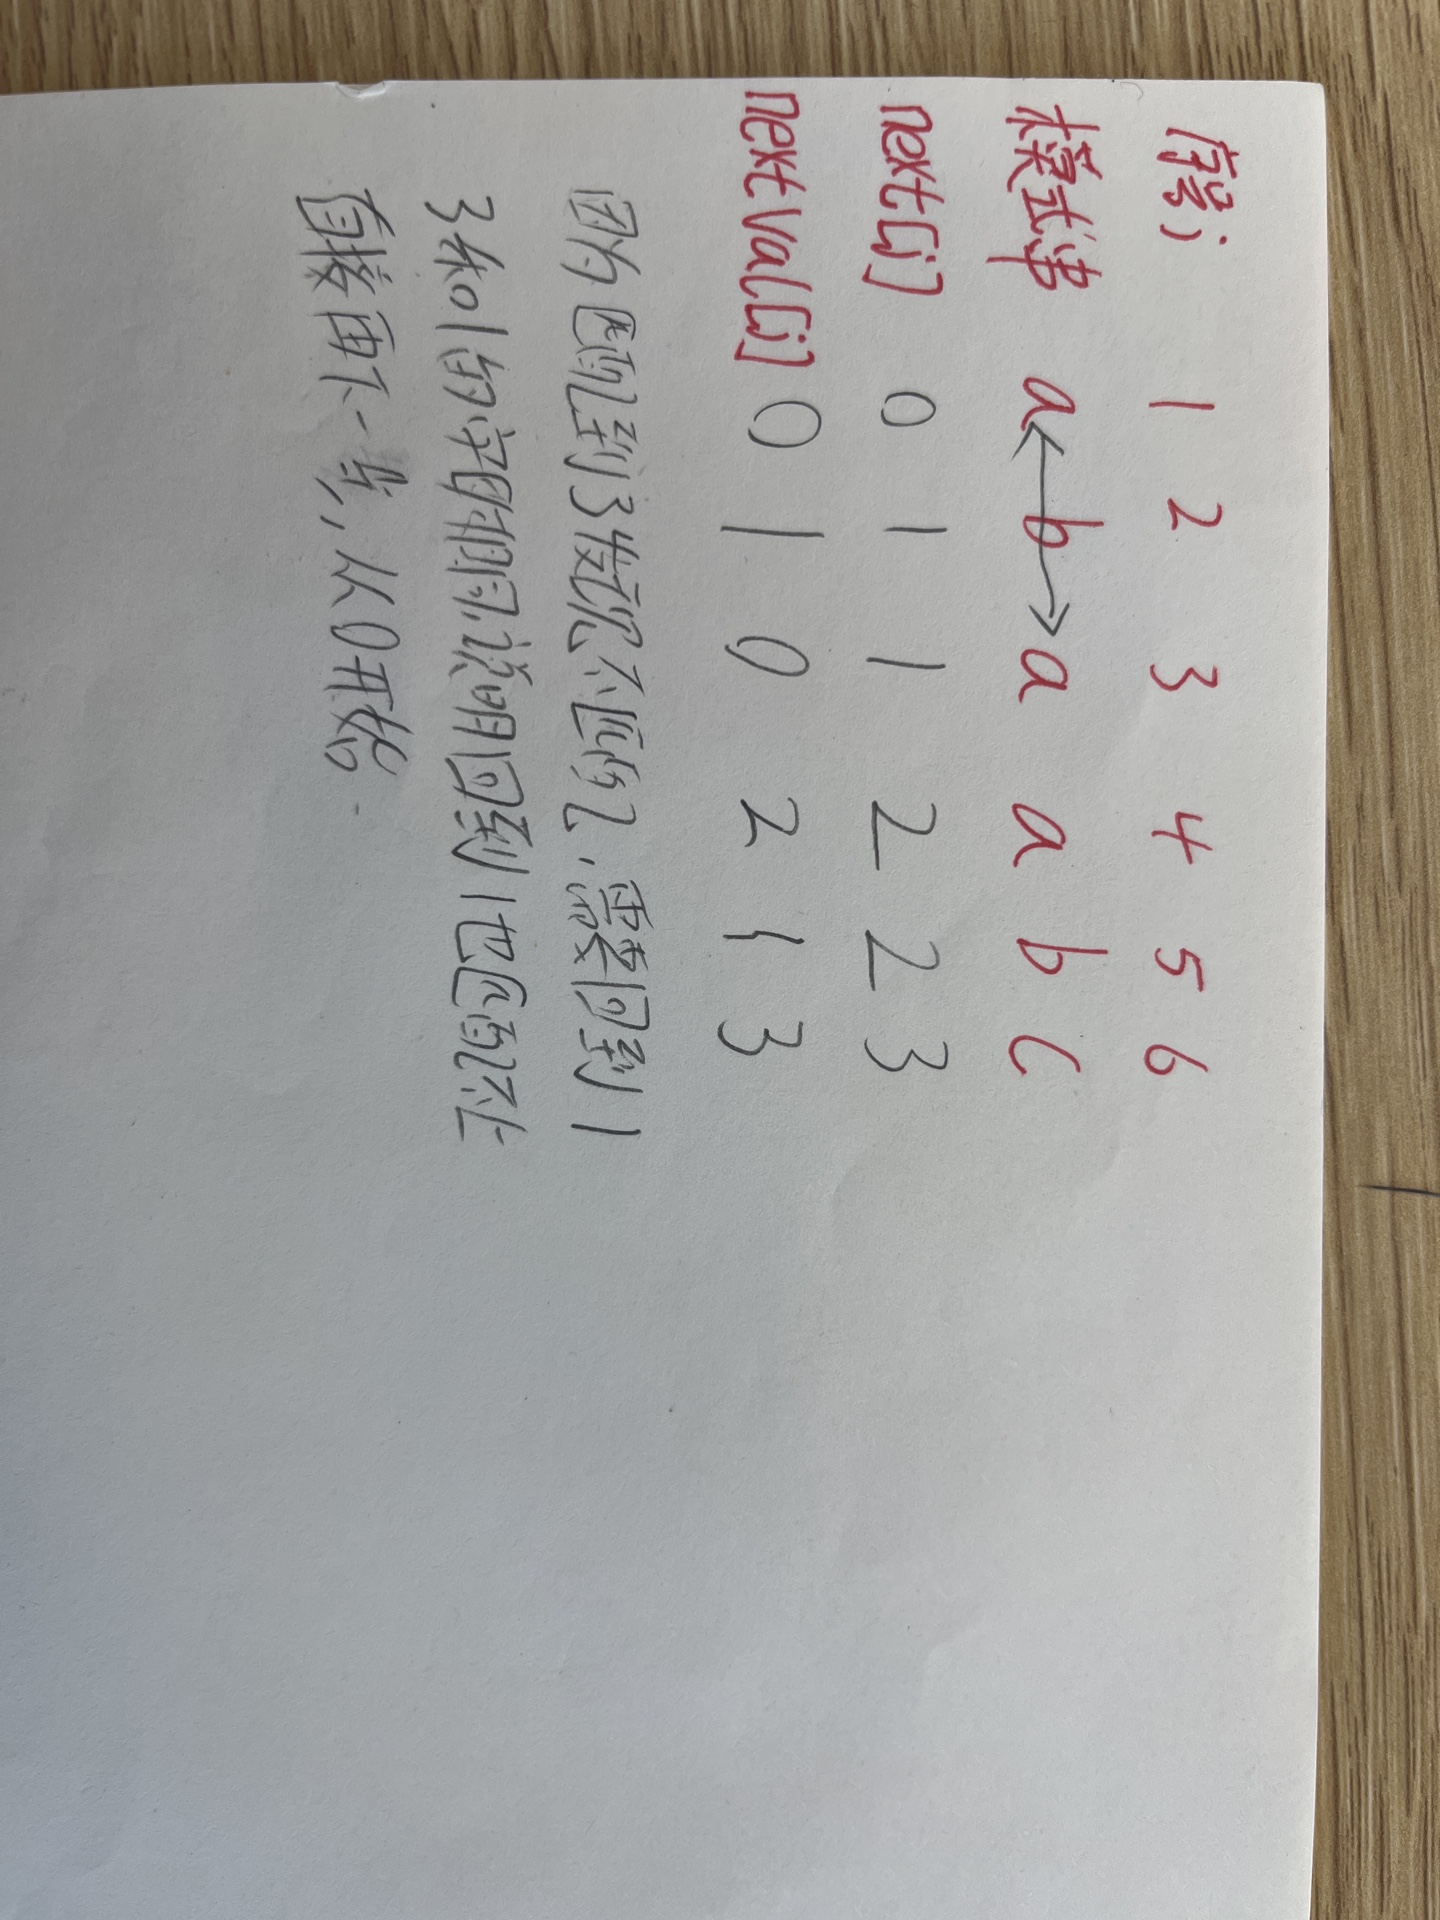 序号j 1 2 3 4 5 6
模式串 a b a a b c
next[j] 0 1 1 2 2 3
nextval[j] 0 1 0 2 1 3
因为匹配到3发现不匹配,需要回到1
3和1的字母相同,说明回到1也匹配不上
直接再下一步,从0开始